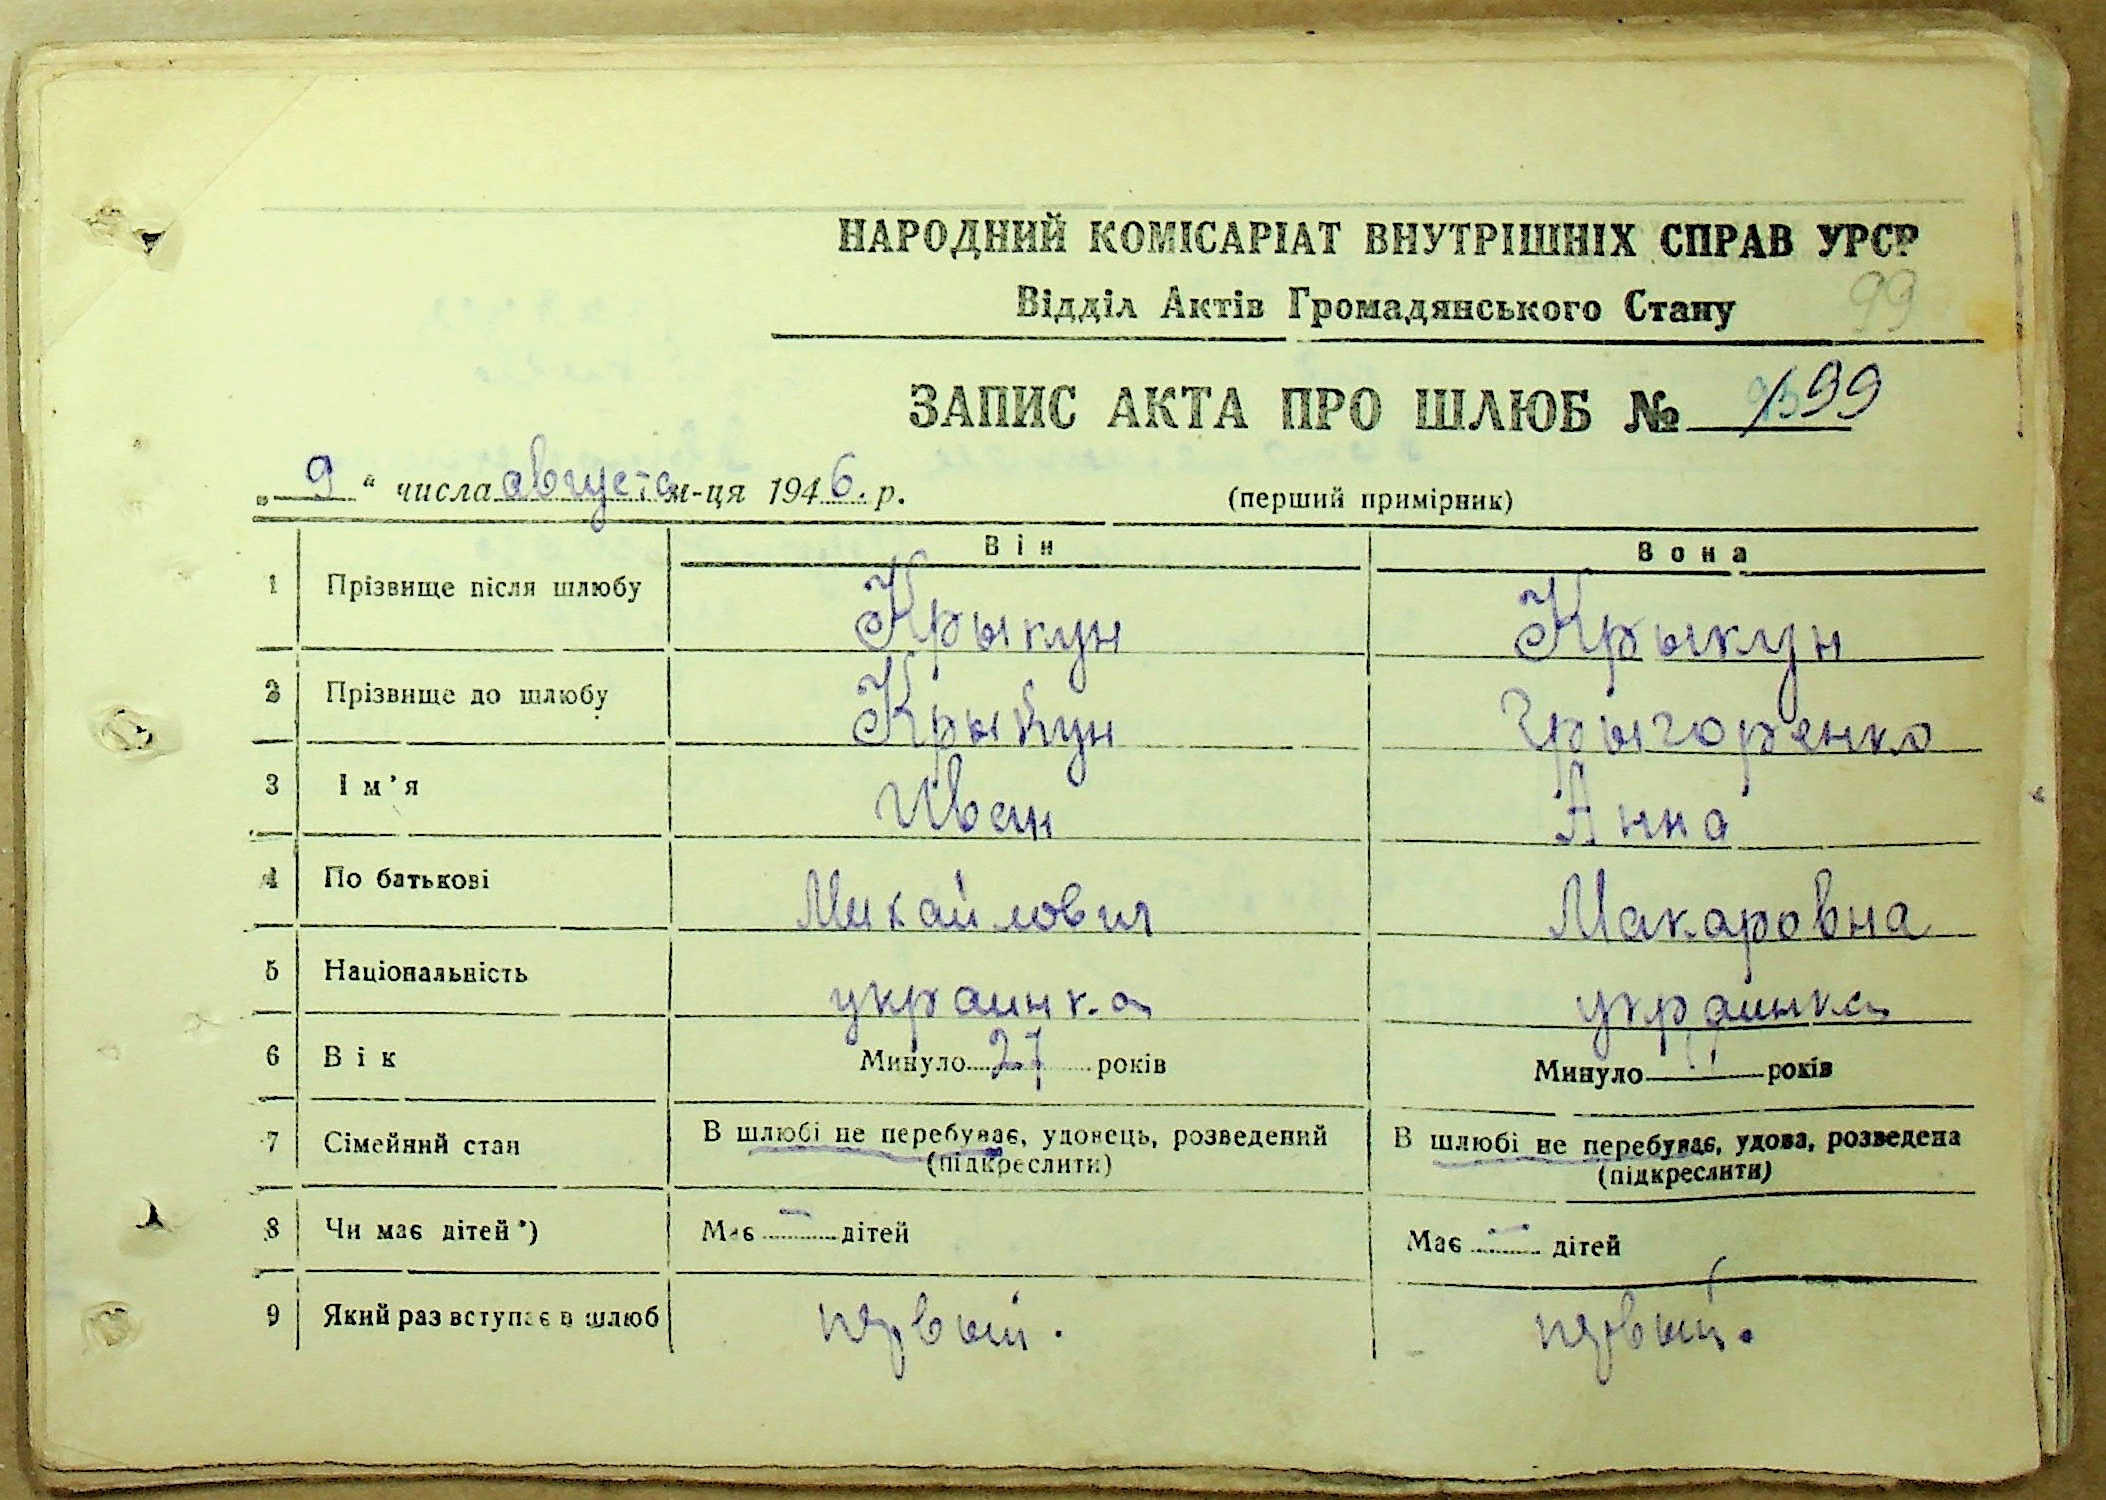 НАРОДНИЙ КОМІСАРІАТ ВНУТРІШНІХ СПРАВ УРСР
Відділ Актів Громадянського Стану
99
ЗАПИС АКТА ПРО ШЛЮБ № 99
„ 9 “ числа августа м-ця 1946. р. (перший примірник)
Він Вона
1 Прізвище після шлюбу Крыкун Крыкун
2 Прізвище до шлюбу Крыкун Грыгоренко
3 Ім’я Иван Анна
4 По батькові Михайлович Макаровна
5 Національність украинка украинка
6 Вік Минуло 27 років Минуло років
7 Сімейний стан В шлюбі не перебуває, удовець, розведений В шлюбі не перебуває, удова, розведена
(підкреслити) (підкреслити)
8 Чи має дітей*) Має — дітей Має — дітей
9 Який раз вступає в шлюб первый. первый.